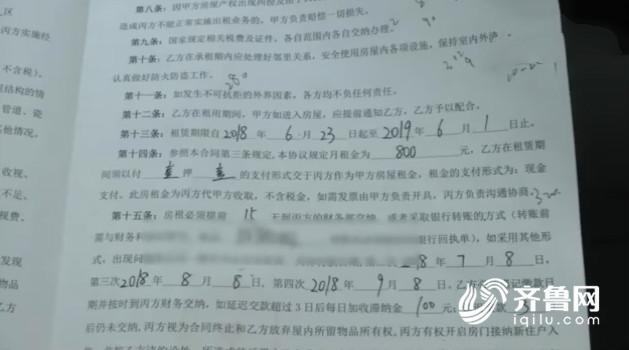 第八条：因甲方房屋产权出现
造成丙方不能正常实施出租业务的，甲方负责赔偿一切损失。
第九条：国家规定相关税费及证件，各自范围内各自交纳办理。
第十条：乙方在承租期内应处理好邻里关系，安全使用房屋内各项设施，保持室内外
认真做好防火防盗工作。
第十一条：如发生不可抗拒的外界因素，各方均不负任何责任。
第十二条：乙方在租用期间，甲方如进入房屋，应提前通知乙方，乙方予以配合。
第十三条：租赁期限自2018年6月23日起至2019年6月1日止。
第十四条：参照本合同第三条规定，本协议规定月租金为800元，乙方在租赁期
间须以付壹押壹的支付形式交于丙方作为甲方房屋租金，租金的支付形式为：现金
支付。此房租金为丙方代甲方收取，不含税金，如需发票由甲方负责开具，丙方负责沟通协商。
第十五条：房租必须提前15天到丙方的财务部交纳，或者采取银行转账的方式（转账前
需与财务
银行回执单），如采用其他形
式，出现问
8年7月8日，
第三次2018年8月8日，第四次2018年9月8日，乙方
期并按时到丙方财务交纳，如延迟交款超过3日后每日加收滞纳金100元；
后仍未交纳，丙方视为合同终止和乙方放弃屋内所留物品所有权，丙方有权开启房门接纳新住户入
区
丙方实施经
不含税)。
屋结构的情
管道、瓷
其他情况。
收视、
不足、
税费、
物品
乙方
齐鲁网
iqilu.com